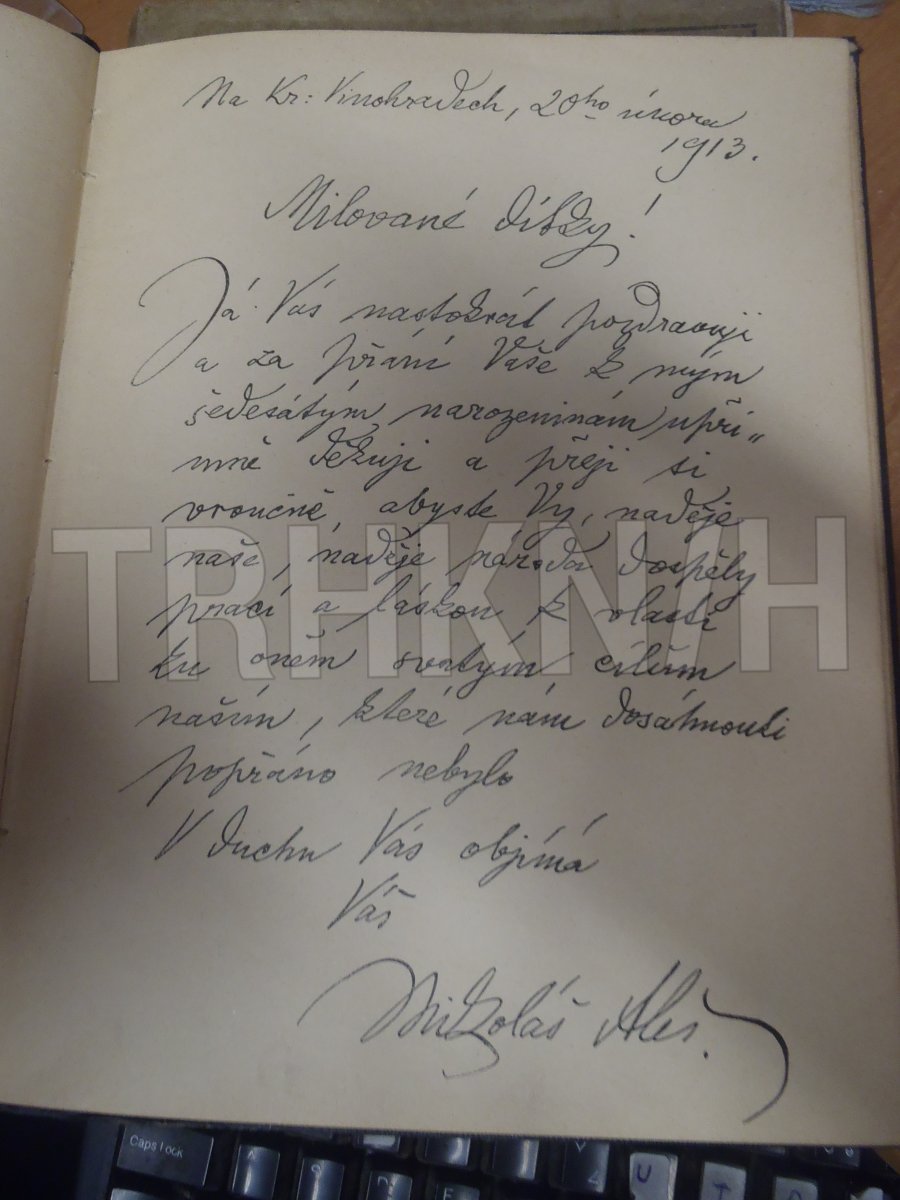 Na Kr: Vinohradech, 20ho února
1913.
Milované dítky!
Já Vás nastokrát pozdravuji
a za přání Vaše k mým
šedesátým narozeninám upří„
mně děkuji a přeji si
vroucně, abyste Vy, naděje
naše, naděje národa dospěly
prací a láskou k vlasti
ku oněm svatým cílům
našim, které nám dosáhnouti
popřáno nebylo
V duchu Vás objímá
Váš
Mikoláš Aleš.
TRHKNIH
Caps Lock
U